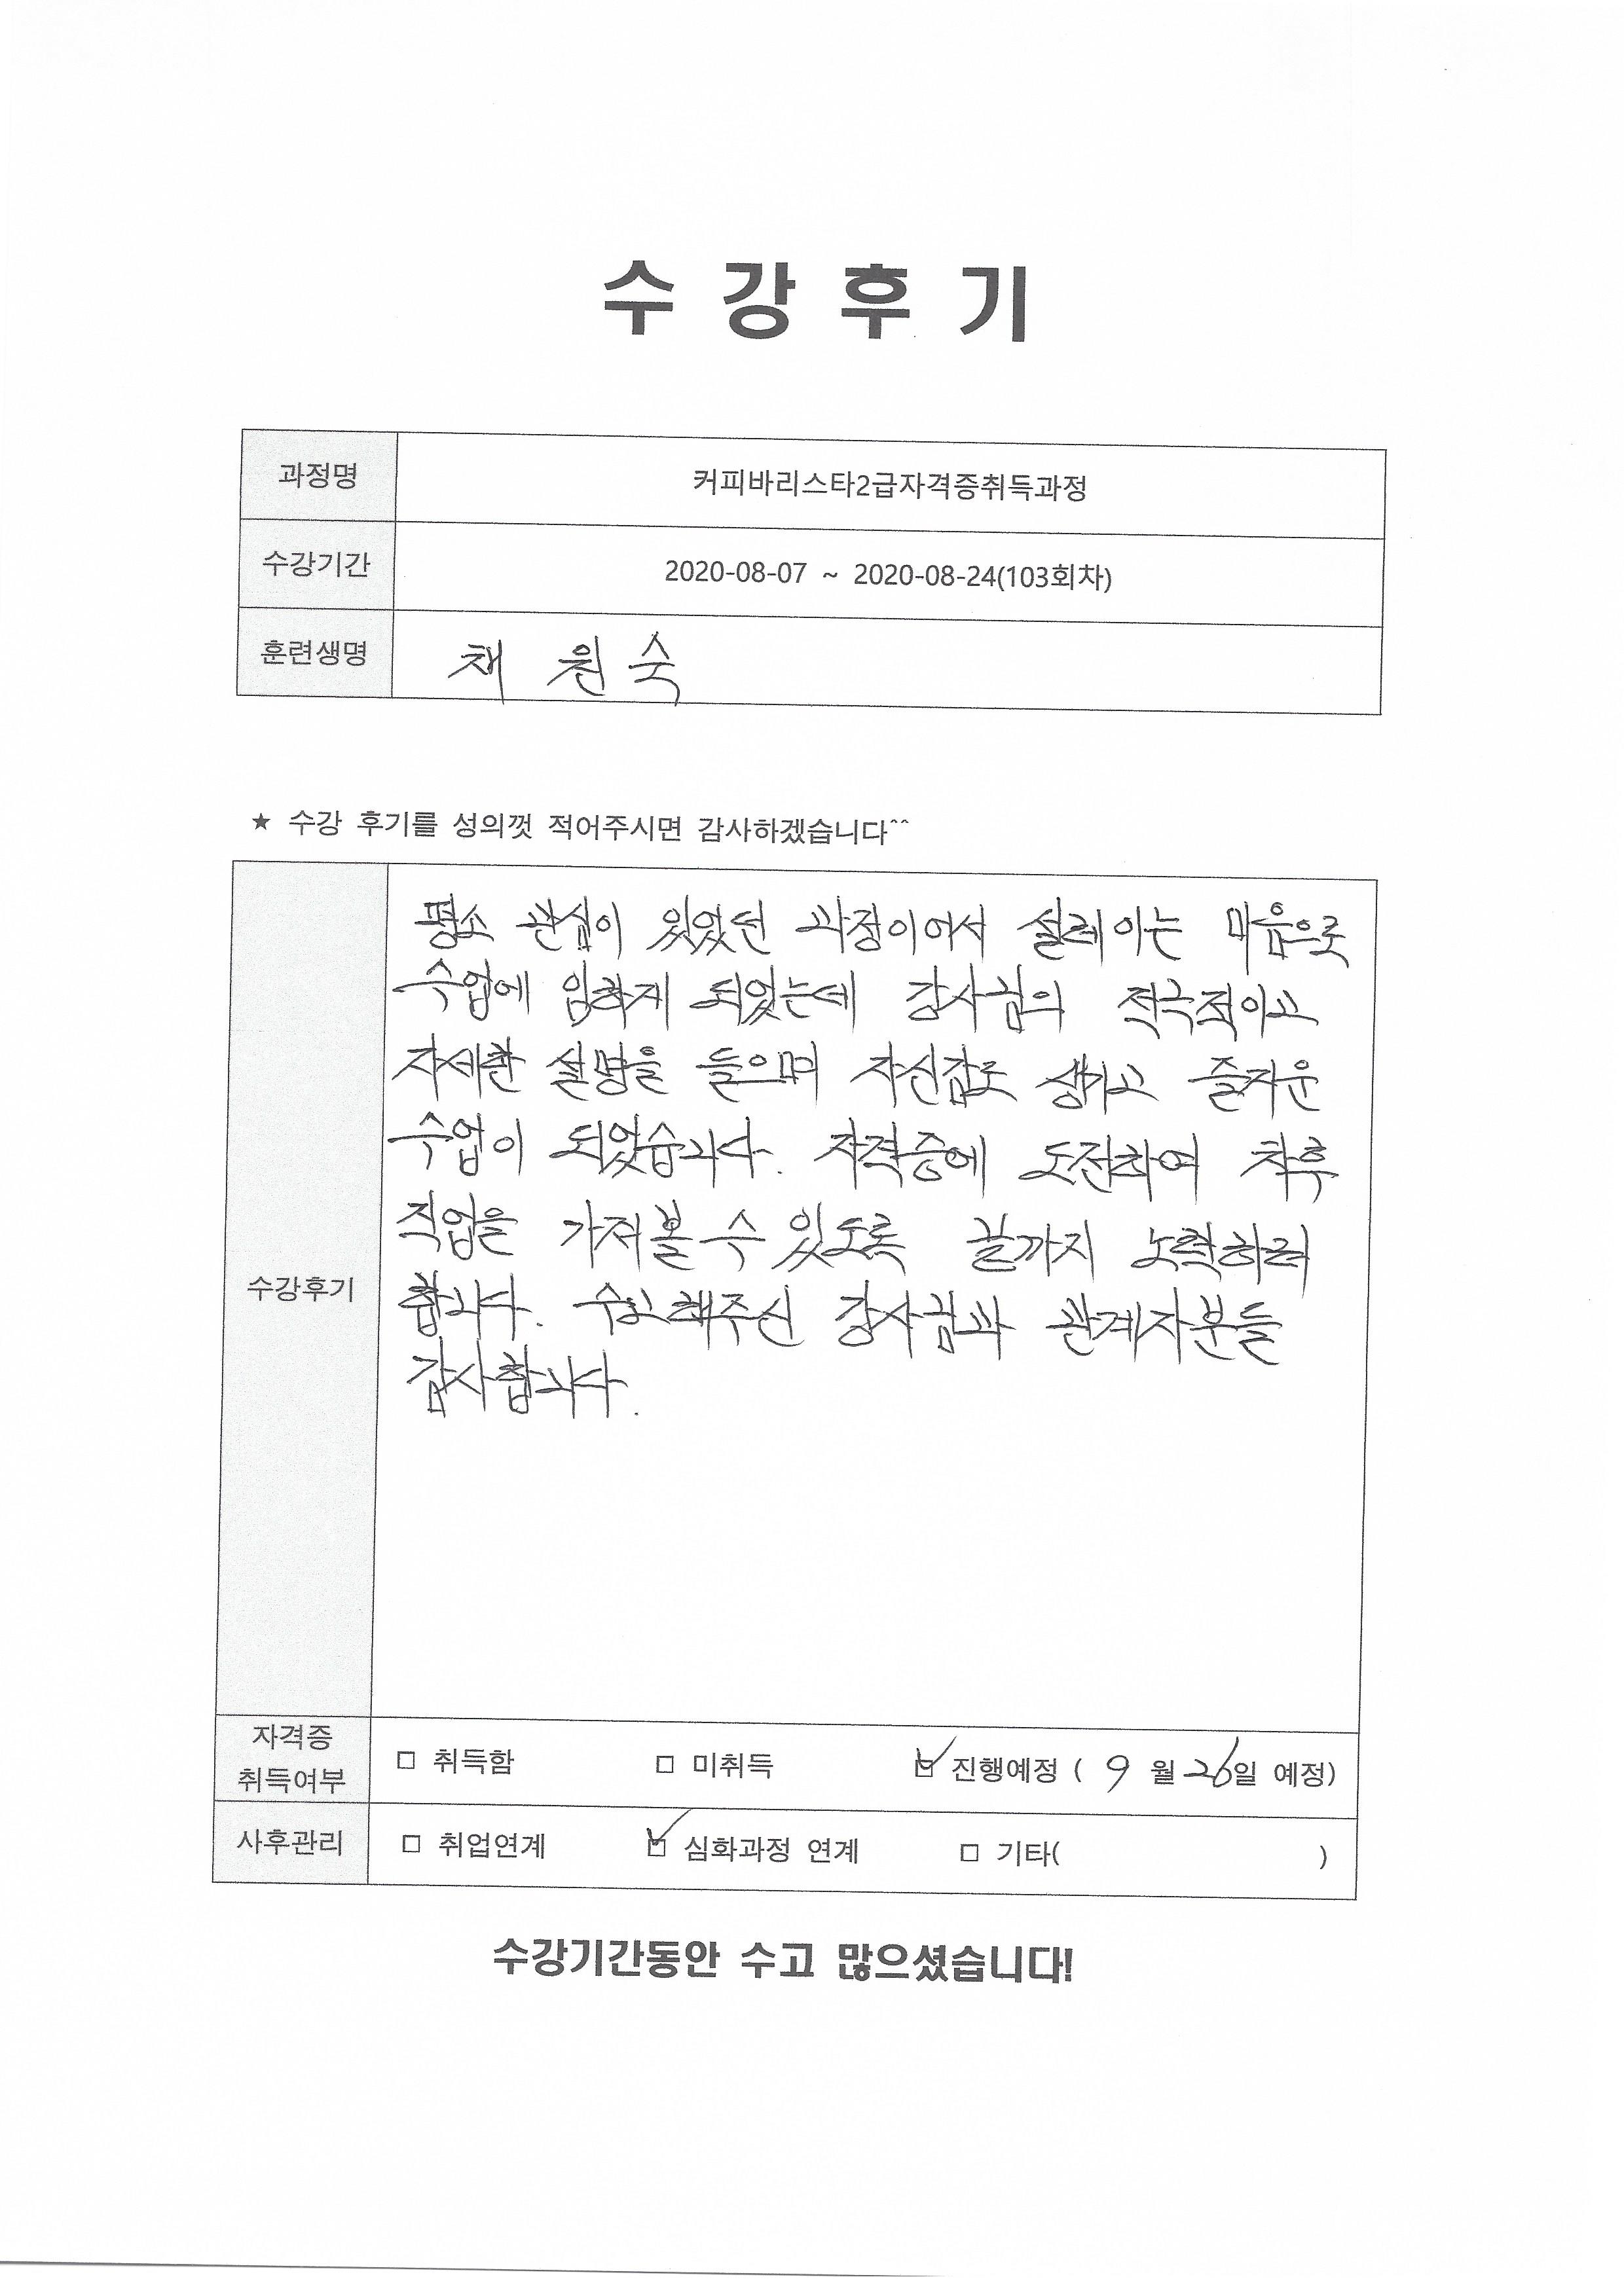 수 강 후 기
과정명 커피바리스타2급자격증취득과정
수강기간 2020-08-07 ~ 2020-08-24(103회차)
훈련생명 채 원 숙
★ 수강 후기를 성의껏 적어주시면 감사하겠습니다^^
평소 관심이 있었던 과정이어서 설레이는 마음으로
수업에 임하게 되었는데 강사님의 적극적이고
자세한 설명을 들으며 자신감도 생기고 즐거운
수업이 되었습니다. 자격증에 도전하여 차후
직업을 가져볼 수 있도록 끝까지 노력하려
수강후기
합니다. 수고해주신 강사님과 관계자분들
감사합니다.
자격증
취득여부
□ 취득함 □ 미취득 ☑ 진행예정 ( 9 월 26일 예정)
사후관리 □ 취업연계 ☑ 심화과정 연계 □ 기타( )
수강기간동안 수고 많으셨습니다!